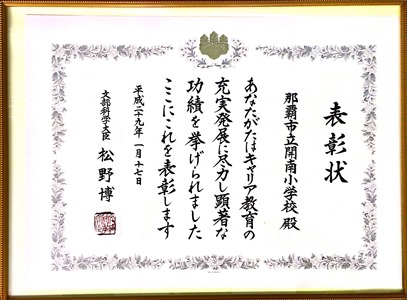 表彰状
那覇市立開南小学校 殿
あなたがたはキャリア教育の
充実発展に尽力し顕著な
功績を挙げられました
ここにこれを表彰します
平成二十九年 一月十七日
文部科学大臣 松野博